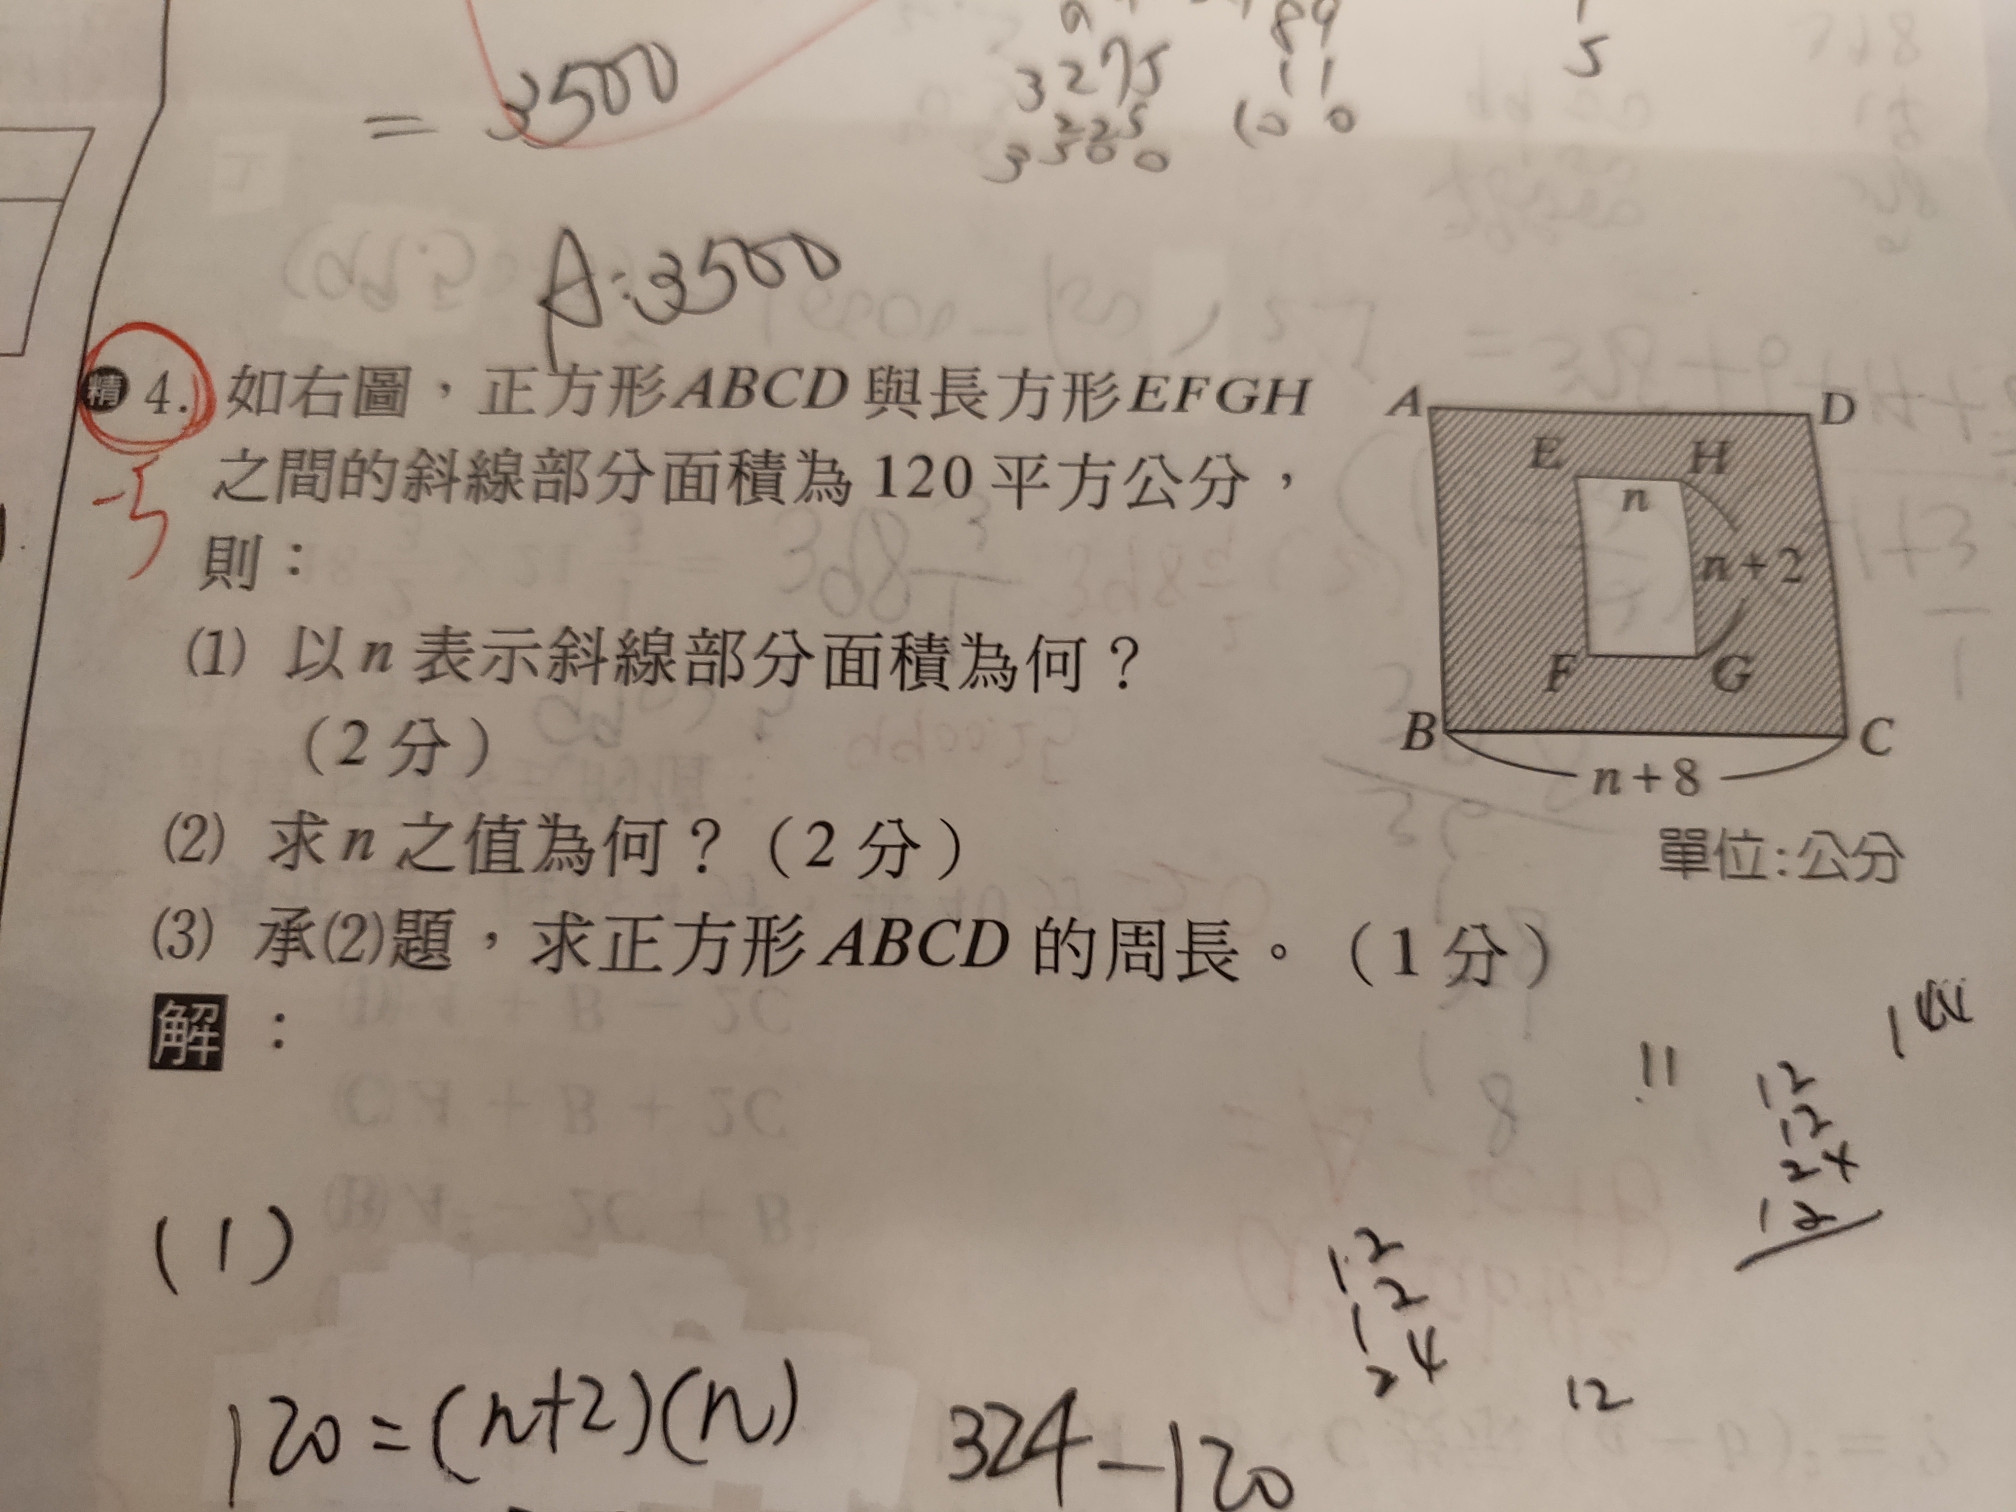 = 3500
3275
5
10 0
A:3500
精 4. 如右圖，正方形ABCD與長方形EFGH
之間的斜線部分面積為120平方公分，
則：
-5
(1) 以n表示斜線部分面積為何？
（2分）
(2) 求n之值為何？（2分）
(3) 承(2)題，求正方形ABCD的周長。（1分）
A D
E H
n
n+2
F G
B C
n+8
單位:公分
解：
144
11
12
12
24
12
(1)
12
2
24
12
120=(n+2)(n)
324-120